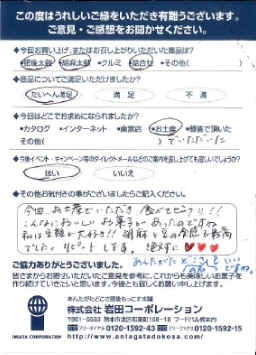 この度はうれしいご縁をいただき有難うございます。
ご意見・ご感想をお聞かせください。
◆今回お買い上げ、またはお召し上がりいただいた商品は?
・肥後太鼓 ・胡麻太鼓 ・クルミ ・詰合せ ・その他( )
◆商品についてご満足いただけましたか?
たいへん満足 満 足 不 満
◆今回はどこでお求めになられましたか?
・カタログ ・インターネット ・直営店 ・お土産 ・贈答で頂いた
その他( )でいただいた
◆今後イベント・キャンペーン等のダイレクトメールなどのご案内を差し上げても宜しいでしょうか?
はい いいえ
◆その他お気付きの事がございましたらご記入ください。
今回、お土産でいただき、食べてビックリ!!
こんなにおいしいお菓子があったのですね
でした。リピートします。絶対に♥♥♥
ご協力ありがとうございました。
皆さまからお寄せいただいたご意見を参考に、これからも美味しいお菓子を
作り続けていきたいと思います。今後とも宜しくお願い申し上げます。
あんたがたどこさと肥後もっこす本舗
株式会社 岩田コーポレーション
IWATA CORPORATION
0120-1592-43 0120-1592-15
http://www.antagatadokosa.com/